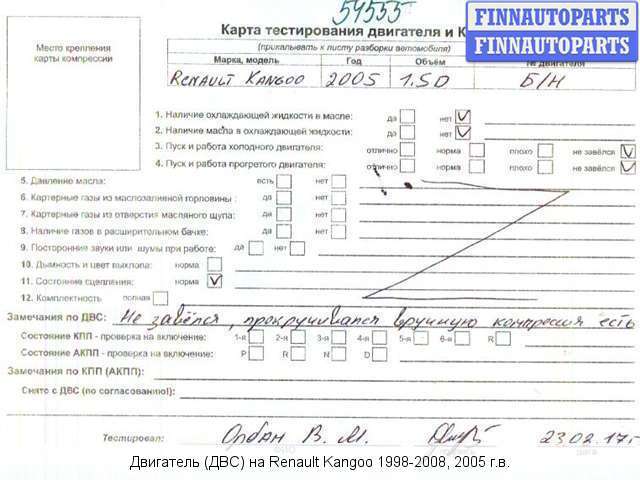 54555
FINNAUTOPARTS
FINNAUTOPARTS
Карта тестирования двигателя и К
(прикалывать к листу разборки автомобиля)
Место крепления
карты компрессии
Марка, модель Год Объём № двигателя
RENAULT KANGOO 2005 1.5D Б/Н
1. Наличие охлаждающей жидкости в масле: да нет
2. Наличие масла в охлаждающей жидкости: да нет
3. Пуск и работа холодного двигателя: отлично норма плохо не завёлся
4. Пуск и работа прогретого двигателя: отлично норма плохо не завёлся
5. Давление масла: есть нет
6. Картерные газы из маслозаливной горловины : да нет
7. Картерные газы из отверстия масляного щупа: да нет
8. Наличие газов в расширительном бачке: да нет
9. Посторонние звуки или шумы при работе: да нет
10. Дымность и цвет выхлопа: норма
11. Состояние сцепления: норма
12. Комплектность полная
Замечания по ДВС: Не завёлся, прокручивался вручную компрессия есть
Состояние КПП - проверка на включение: 1-я 2-я 3-я 4-я 5-я 6-я R
Состояние АКПП - проверка на включение: P R N D
Замечания по КПП (АКПП):
Снято с ДВС (по согласованию!):
Тестировал: В. М. 23.02.17г
ФИО дата
Двигатель (ДВС) на Renault Kangoo 1998-2008, 2005 г.в.